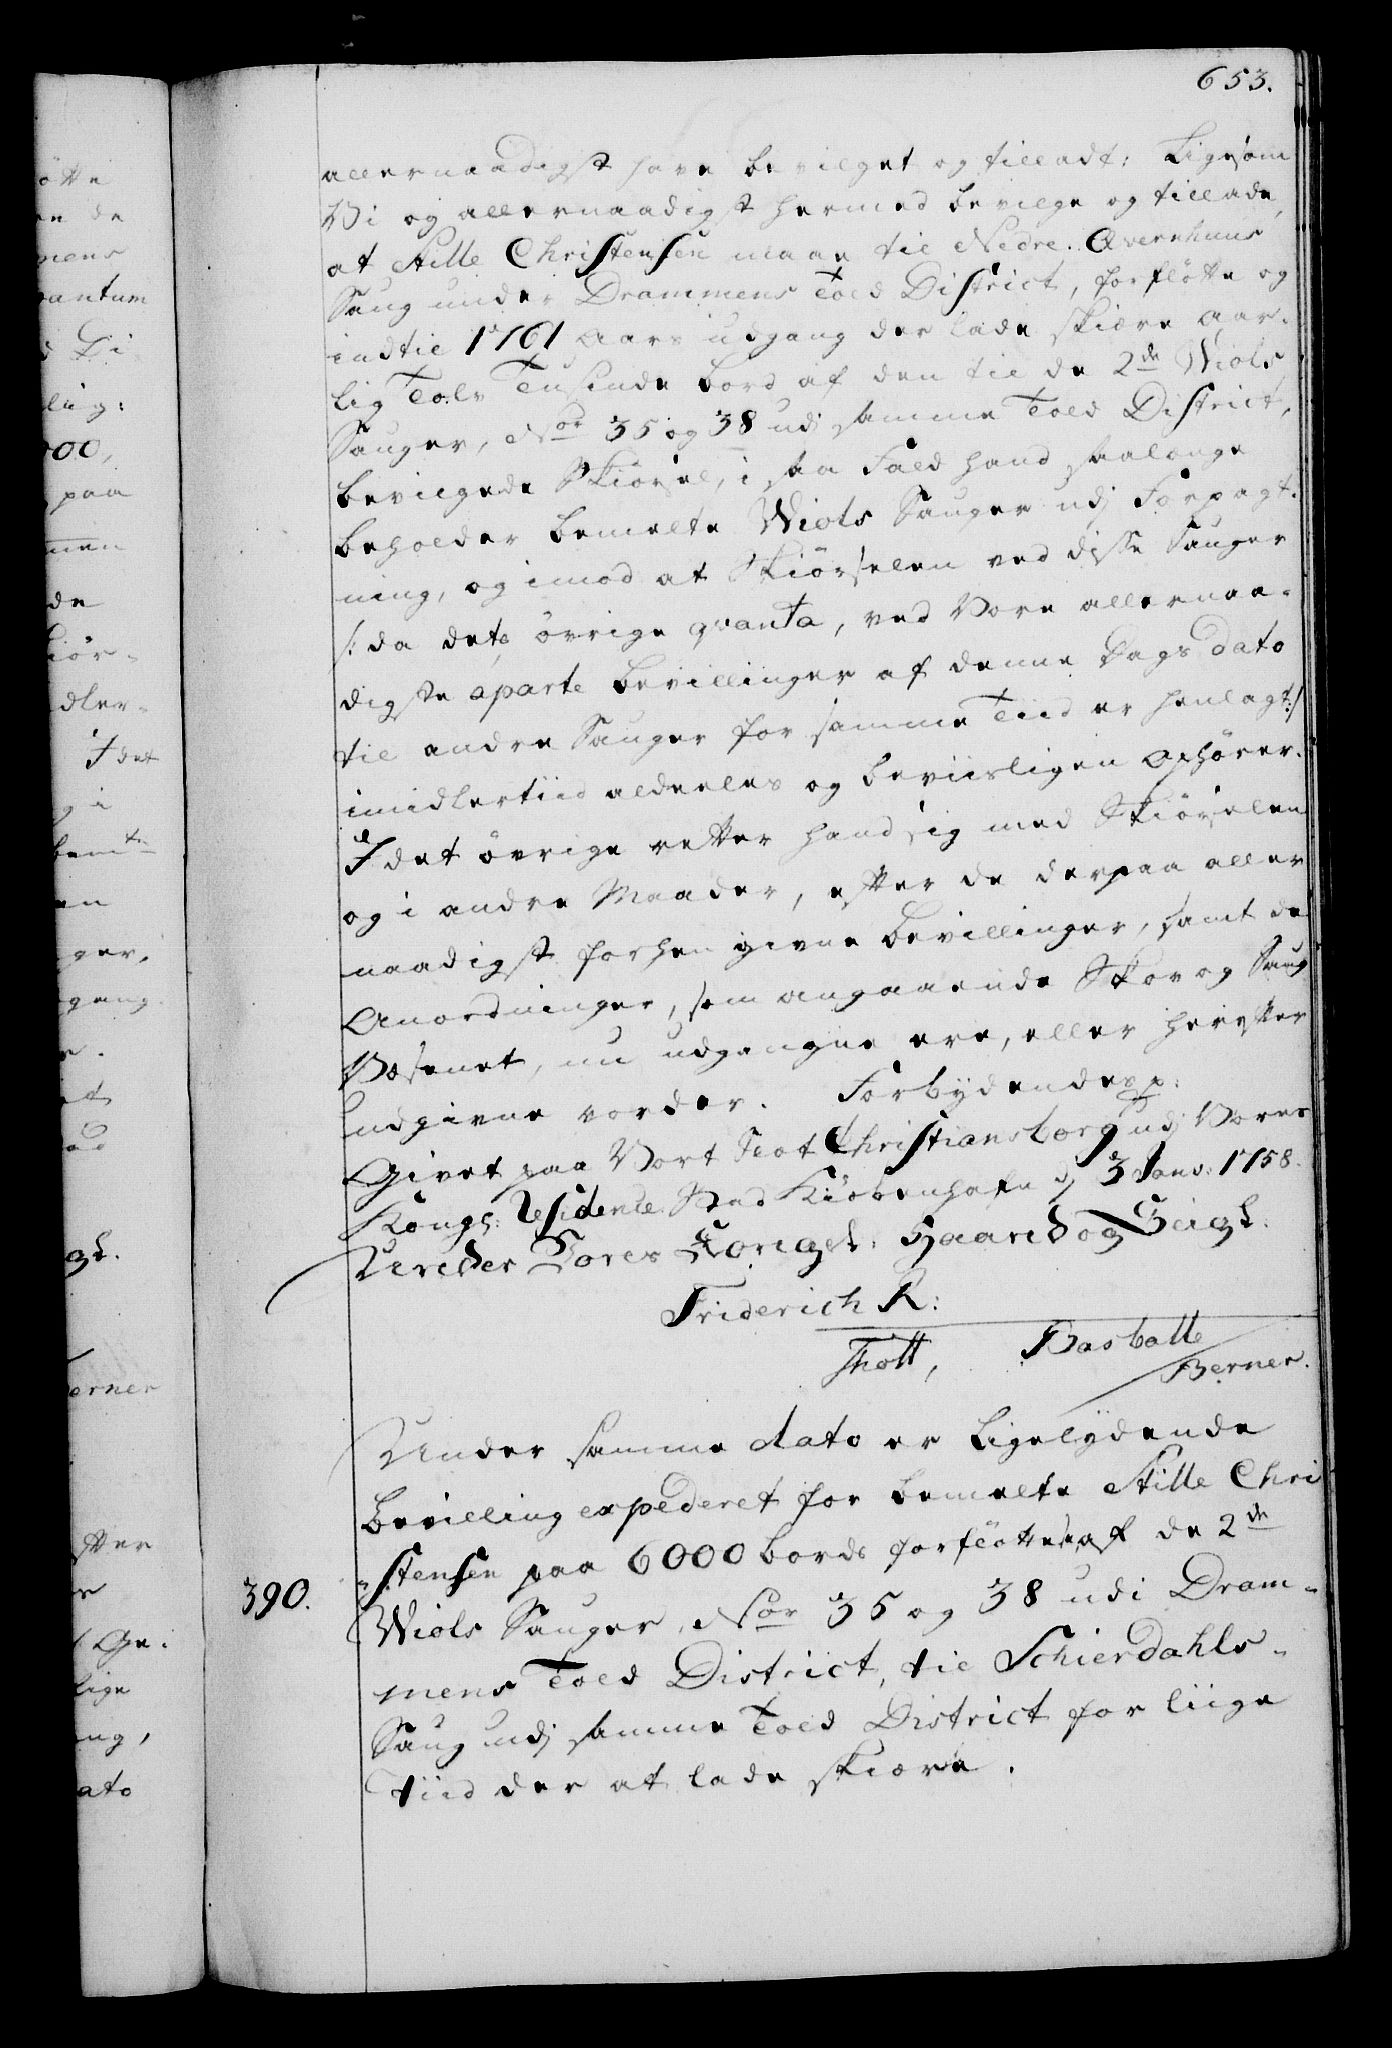 653.
allernaadigst have bevilget og tilladt: Ligesom
Vi og allernaadigst hermed bevilge og tillade,
at Stille Christensen maae til Nedre Qvernhuus
Saug under Drammens Told District, forflötte og
indtil 1761 Aars udgang der lade skiære aar-
lig Tolv Tusinde bord af den til de 2de Wiols
Sauger, Nor 35 og 38 udi samme Told District,
bevilgede Skiörsel, i saa Fald hand saalænge
beholder bemelte Wiols Sauger udj Forpagt-
ning, og imod at Skiörselen ved disse Sauger
/: da dets övrige qvanta, ved Vore allernaa-
digste aparte bevillinger af denne Dags dato
til andre Sauger for samme Tiid er henlagt :/
imidlertiid aldeeles og beviisligen ophörer.
I det övrige retter hand sig med Skiörselen
og i andre Maader, efter de derpaa aller
naadigst forhen givne bevillinger, samt de
Anordninger, som angaaende Skov og Saug
Væsenet, nu udgangne ere, eller herefter
udgivne vorder. Forbydendes p:
Givet paa Vort Slot Christiansborg udj Vores
Kongl: Residence Stad Kiöbenhafn dj 3 Janv: 1758.
Under Vores Kongel: Haand og Seigl.
Friderich R:
Thott, Basballe
Berner.
Under samme dato er Ligelydende
bevilling expederet for bemelte Stille Chri
390. stensen paa 6000 bords forflöttelse af de 2de
Wiols Sauger, Nor 35 og 38 udi Dram-
mens Told District, til Schierdahls-
Saug udj samme Told District for liige
Tiid der at lade skiære.
ötte
en de
mens
antum
d Li
lig:
000,
paa
men
de
iör-
dler-
I det
g i
bemte
en
ger,
gang
et
gl.
erner
fter
Ge:
lige
ng,
ato